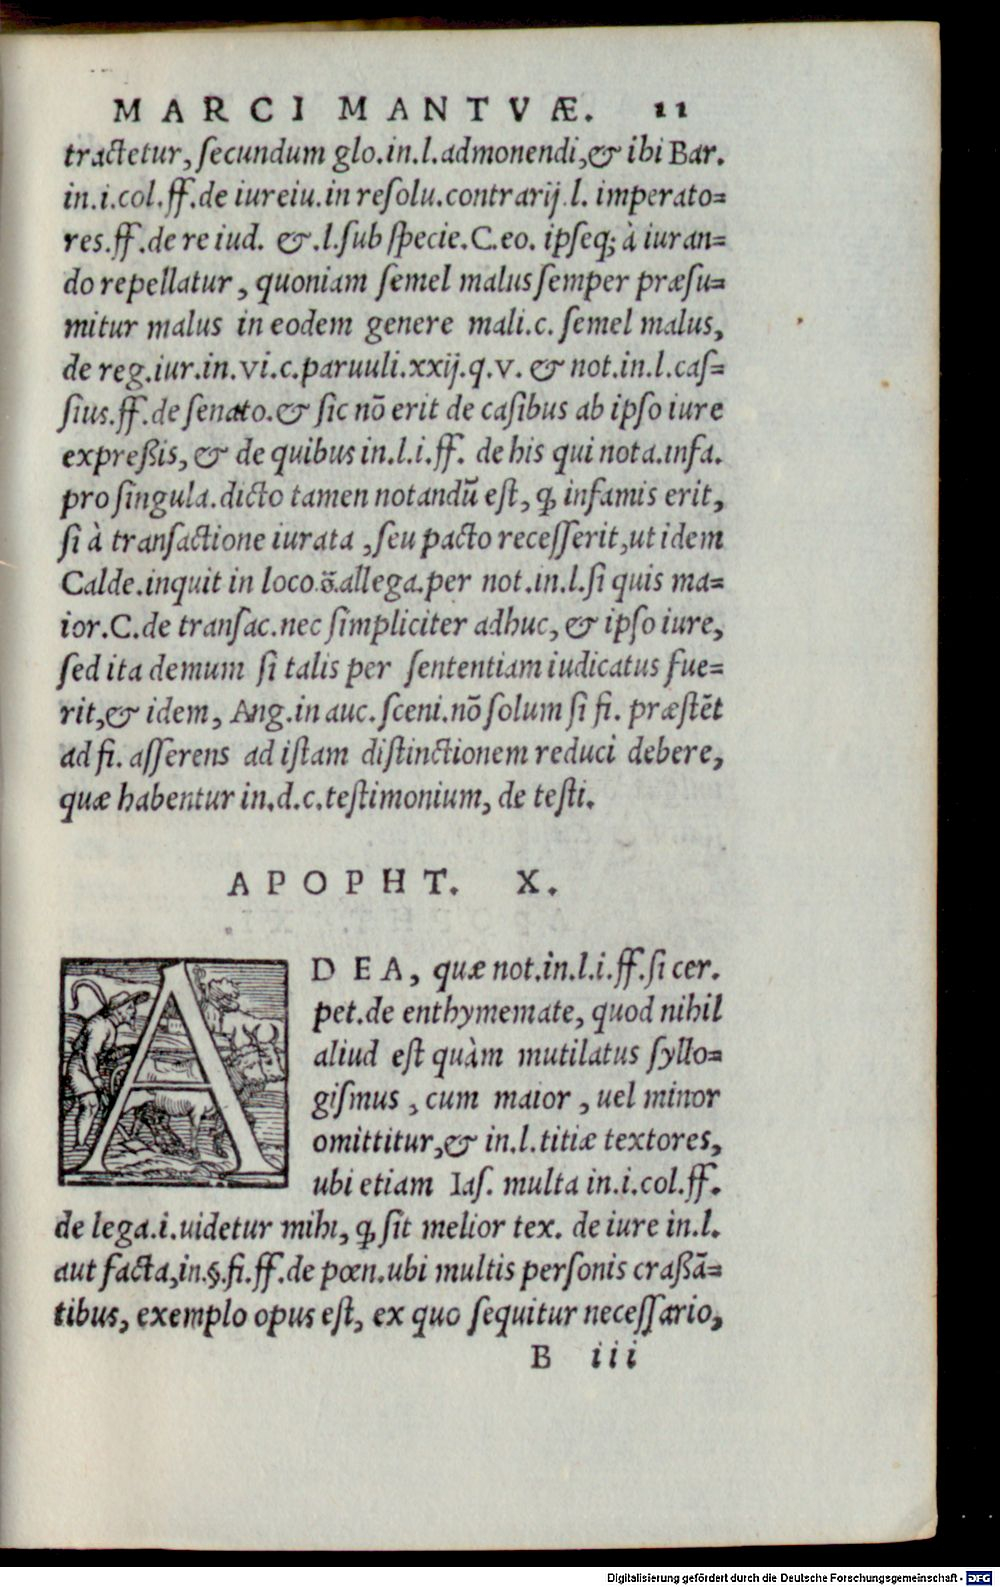 MARCI MANTVÆ. 11
tractetur, ſecundum glo.in.l.admonendi,& ibi Bar.
in.i.col.ff.de iureiu.in reſolu.contrarij.l. imperato=
res.ff.de re iud. &.l.ſub ſpecie.C.eo. ipſeq; à iuran=
do repellatur, quoniam ſemel malus ſemper præſu=
mitur malus in eodem genere mali.c. ſemel malus,
de reg.iur.in.vi.c.paruuli.xxij.q.v. & not.in.l.caſ=
ſius.ff.de ſenato.& ſic nō erit de caſibus ab ipſo iure
expreßis, & de quibus in.l.i.ff. de his qui nota.infa.
pro ſingula.dicto tamen notandū eſt, ꝙ infamis erit,
ſi à tranſactione iurata, ſeu pacto receſſerit,ut idem
Calde.inquit in loco.s̄.allega.per not.in.l.ſi quis ma=
ior.C.de tranſac.nec ſimpliciter adhuc, & ipſo iure,
ſed ita demum ſi talis per ſententiam iudicatus fue=
rit,& idem, Ang.in auc.ſceni.nō ſolum ſi fi. præſtēt
ad fi. aſſerens ad iſtam diſtinctionem reduci debere,
quæ habentur in.d.c.teſtimonium, de teſti.
APOPHT. X.
ADEA, quæ not.in.l.i.ff.ſi cer.
pet.de enthymemate, quod nihil
aliud eſt quàm mutilatus ſyllo=
giſmus, cum maior, uel minor
omittitur,& in.l.titiæ textores,
ubi etiam Iaſ. multa in.i.col.ff.
de lega.i.uidetur mihi, ꝙ ſit melior tex. de iure in.l.
aut facta,in.§.fi.ff.de pœn.ubi multis perſonis craßā=
tibus, exemplo opus eſt, ex quo ſequitur neceſſario,
B iii
Digitalisierung gefördert durch die Deutsche Forschungsgemeinschaft - DFG